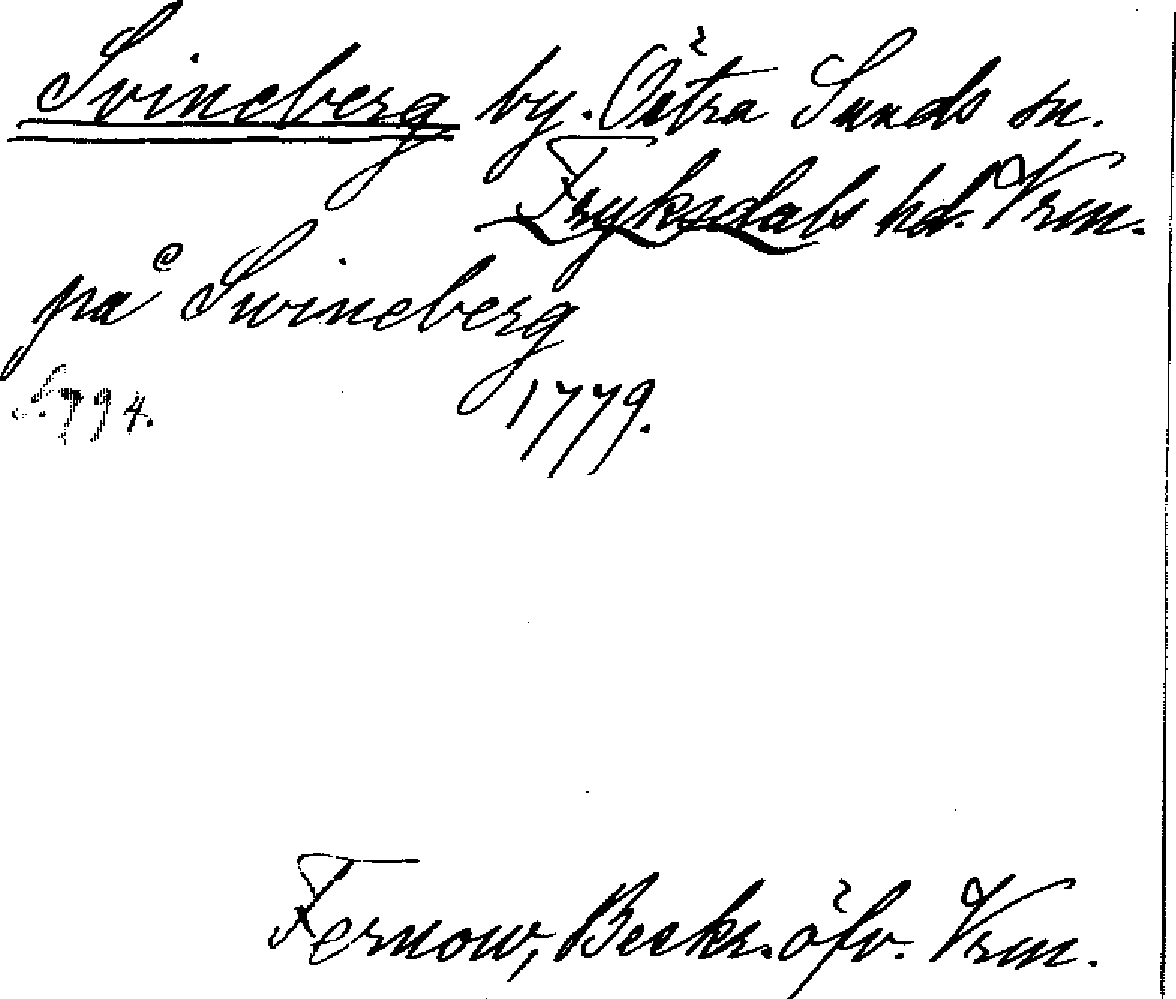 Svineberg by. Östra Sunds sn.
Fryksdals hd. Vrm.
på Swineberg
S. 794. 1779.
Fernow, Beskr. öfv. Vrm.